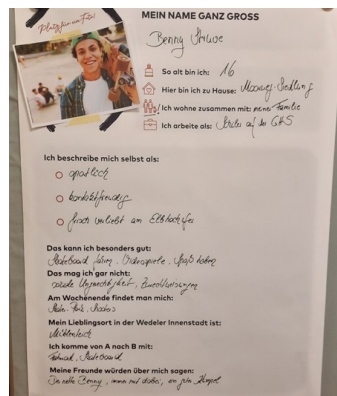 Platz für ein Foto!
MEIN NAME GANZ GROSS
Benny Struwe
So alt bin ich: 16
Hier bin ich zu Hause: Moorweg-Siedlung
Ich wohne zusammen mit: meiner Familie
Ich arbeite als: auf der GHS
Ich beschreibe mich selbst als:
sportlich
kontaktfreudig
frisch verliebt am Elbhochufer
Das kann ich besonders gut:
Skateboard fahren, Videospiele, Spaß haben
Das mag ich gar nicht:
soziale Ungerechtigkeit,
Am Wochenende findet man mich:
Skater-Park,
Mein Lieblingsort in der Wedeler Innenstadt ist:
Mühlenteich
Ich komme von A nach B mit:
Fahrrad, Skateboard
Meine Freunde würden über mich sagen:
Der nette Benny, immer mit dabei, ein guter Kumpel